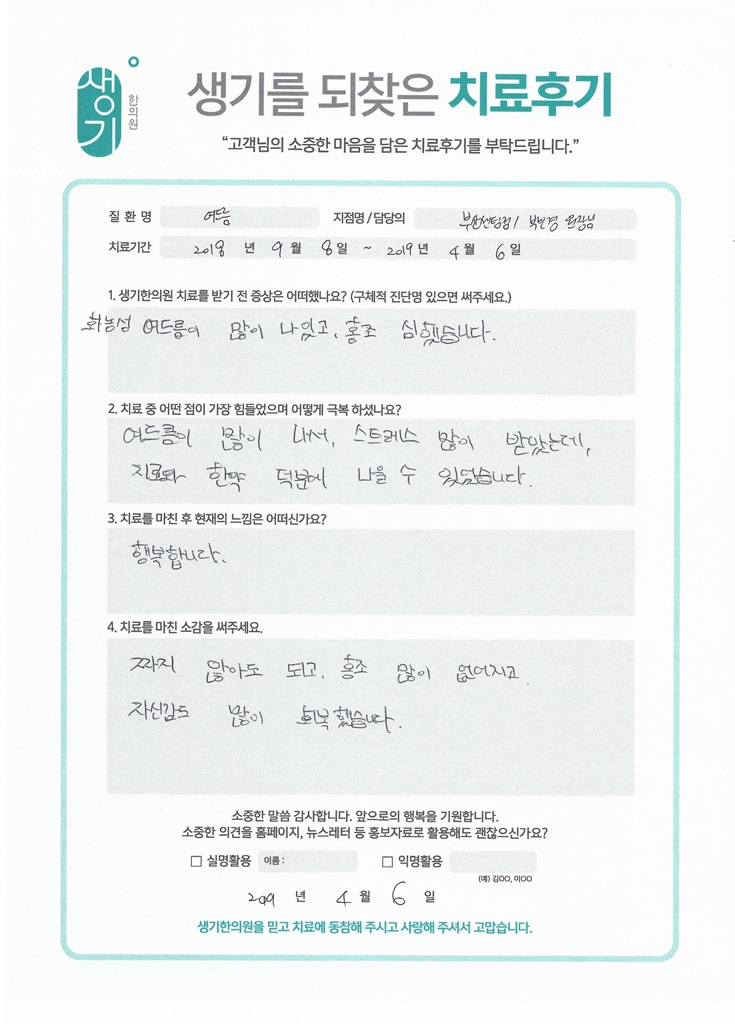 생기
한의원
생기를 되찾은 치료후기
“고객님의 소중한 마음을 담은 치료후기를 부탁드립니다.”
질 환 명 여드름 지점명 / 담당의 부산센텀점 / 박보경 원장님
치료기간 2018 년 9 월 8 일 ~ 2019 년 4 월 6 일
1. 생기한의원 치료를 받기 전 증상은 어떠했나요? (구체적 진단명 있으면 써주세요.)
화농성 여드름이 많이 나있고, 홍조 심했습니다.
2. 치료 중 어떤 점이 가장 힘들었으며 어떻게 극복 하셨나요?
여드름이 많이 나서, 스트레스 많이 받았는데,
치료와 한약 덕분에 나을 수 있었습니다.
3. 치료를 마친 후 현재의 느낌은 어떠신가요?
행복합니다.
4. 치료를 마친 소감을 써주세요.
짜지 않아도 되고, 홍조 많이 없어지고
자신감도 많이 회복했습니다.
소중한 말씀 감사합니다. 앞으로의 행복을 기원합니다.
소중한 의견을 홈페이지, 뉴스레터 등 홍보자료로 활용해도 괜찮으신가요?
□ 실명활용 이름 : □ 익명활용
(예) 김OO, 이OO
2019 년 4 월 6 일
생기한의원을 믿고 치료에 동참해 주시고 사랑해 주셔서 고맙습니다.